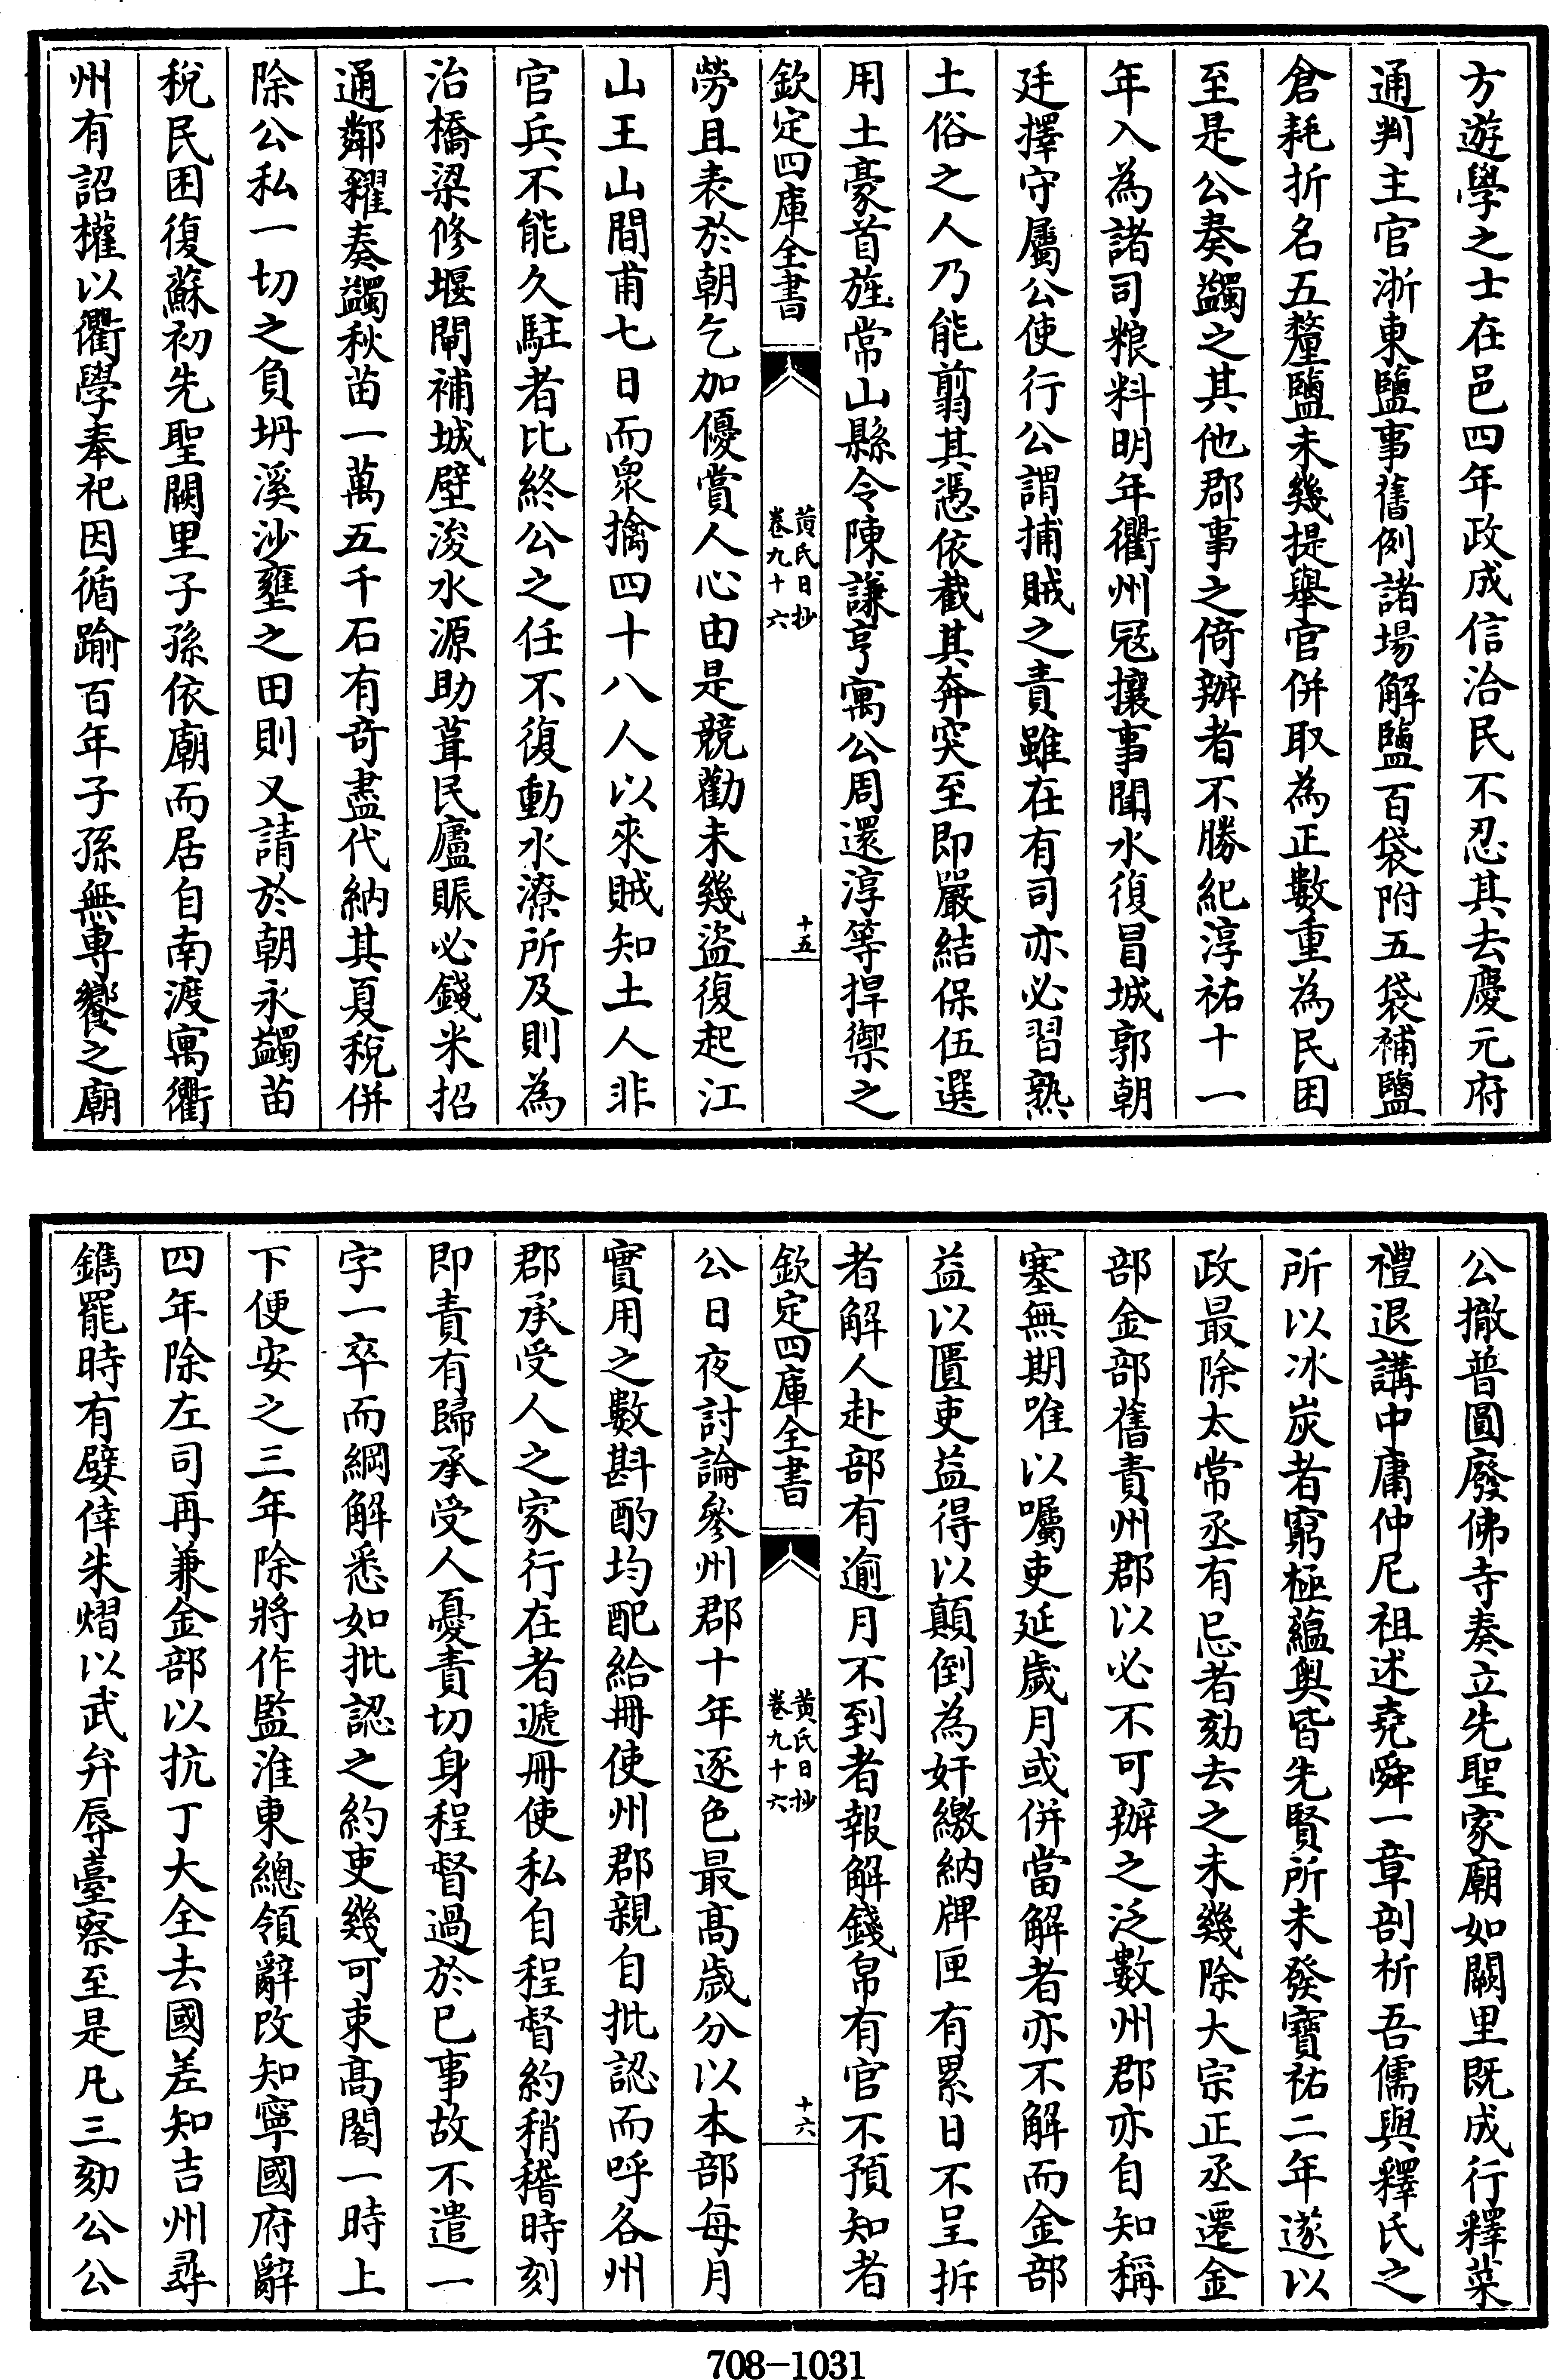 方遊學之士在邑四年政成信洽民不忍其去慶元府
通判主官浙東鹽事舊例諸場解鹽百袋附五袋補鹽
倉耗折名五釐鹽未幾提舉官併取為正數重為民困
至是公奏蠲之其他郡事之倚辦者不勝紀淳祐十一
年入為諸司粮料明年衢州冦攘事聞水復冒城郭朝
廷擇守屬公使行公謂捕賊之責雖在有司亦必習熟
土俗之人乃能翦其憑依截其奔突至即嚴結保伍選
用土豪首旌常山縣令陳謙亨寓公周還淳等捍禦之
欽定四庫全書
黄氏日抄
卷九十六
十五
勞且表於朝乞加優賞人心由是競勸未幾盜復起江
山王山間甫七日而衆擒四十八人以來賊知土人非
官兵不能久駐者比終公之任不復動水潦所及則為
治橋梁修堰閘補城壁浚水源助葺民廬賑必錢米招
通鄰糴奏蠲秋苗一萬五千石有竒盡代納其夏稅併
除公私一切之負坍溪沙壅之田則又請於朝永蠲苗
稅民困復蘇初先聖闕里子孫依廟而居自南渡寓衢
州有詔權以衢學奉祀因循踰百年子孫無專饗之廟
公撤普圓廢佛寺奏立先聖家廟如闕里既成行釋菜
禮退講中庸仲尼祖述堯舜一章剖析吾儒與釋氏之
所以冰炭者窮極蘊奥皆先賢所未發寶祐二年遂以
政最除太常丞有忌者劾去之未幾除大宗正丞遷金
部金部舊責州郡以必不可辦之泛數州郡亦自知稱
塞無期唯以囑吏延歲月或併當解者亦不解而金部
益以匱吏益得以顛倒為奸繳納牌匣有累日不呈拆
者解人赴部有逾月不到者報解錢帛有官不預知者
欽定四庫全書
黄氏日抄
卷九十六
十六
公日夜討論參州郡十年逐色最髙歲分以本部每月
實用之數斟酌均配給冊使州郡親自批認而呼各州
郡承受人之家行在者遞冊使私自程督約稍稽時刻
即責有歸承受人憂責切身程督過於已事故不遣一
字一卒而綱解悉如批認之約吏幾可束髙閣一時上
下便安之三年除將作監淮東總領辭改知寧國府辭
四年除左司再兼金部以抗丁大全去國差知吉州尋
鐫罷時有嬖倖朱熠以武弁辱臺察至是凡三劾公公
708-1031